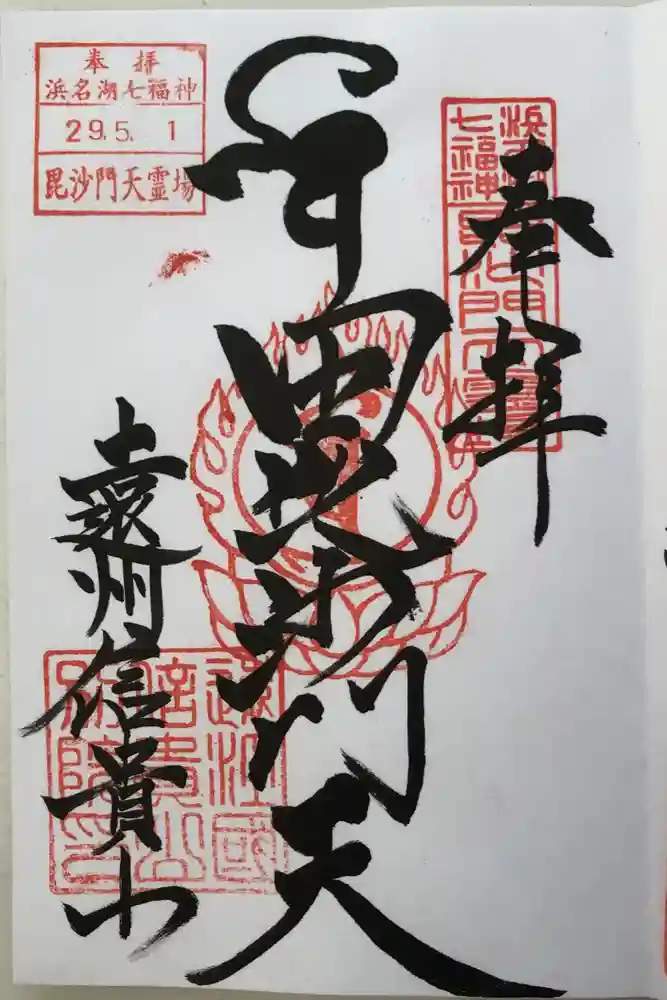 奉拝
浜名湖七福神
毘沙門天霊場
毘沙門天
奉拝
浜名湖七福神
29.5.1
毘沙門天霊場
遠州信貴山
遠江國
信貴山
別院印